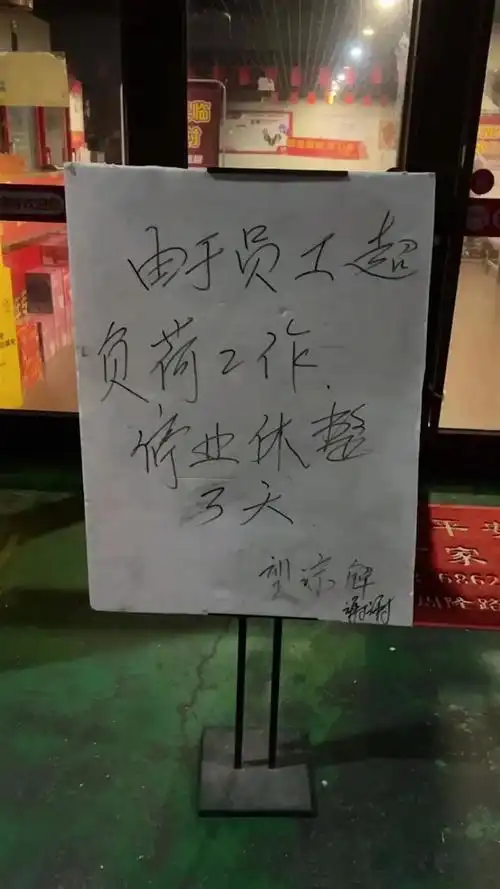 由于员工超
负荷工作.
停业休整
3天
望谅解
谢谢
平安
家
6862
隆路